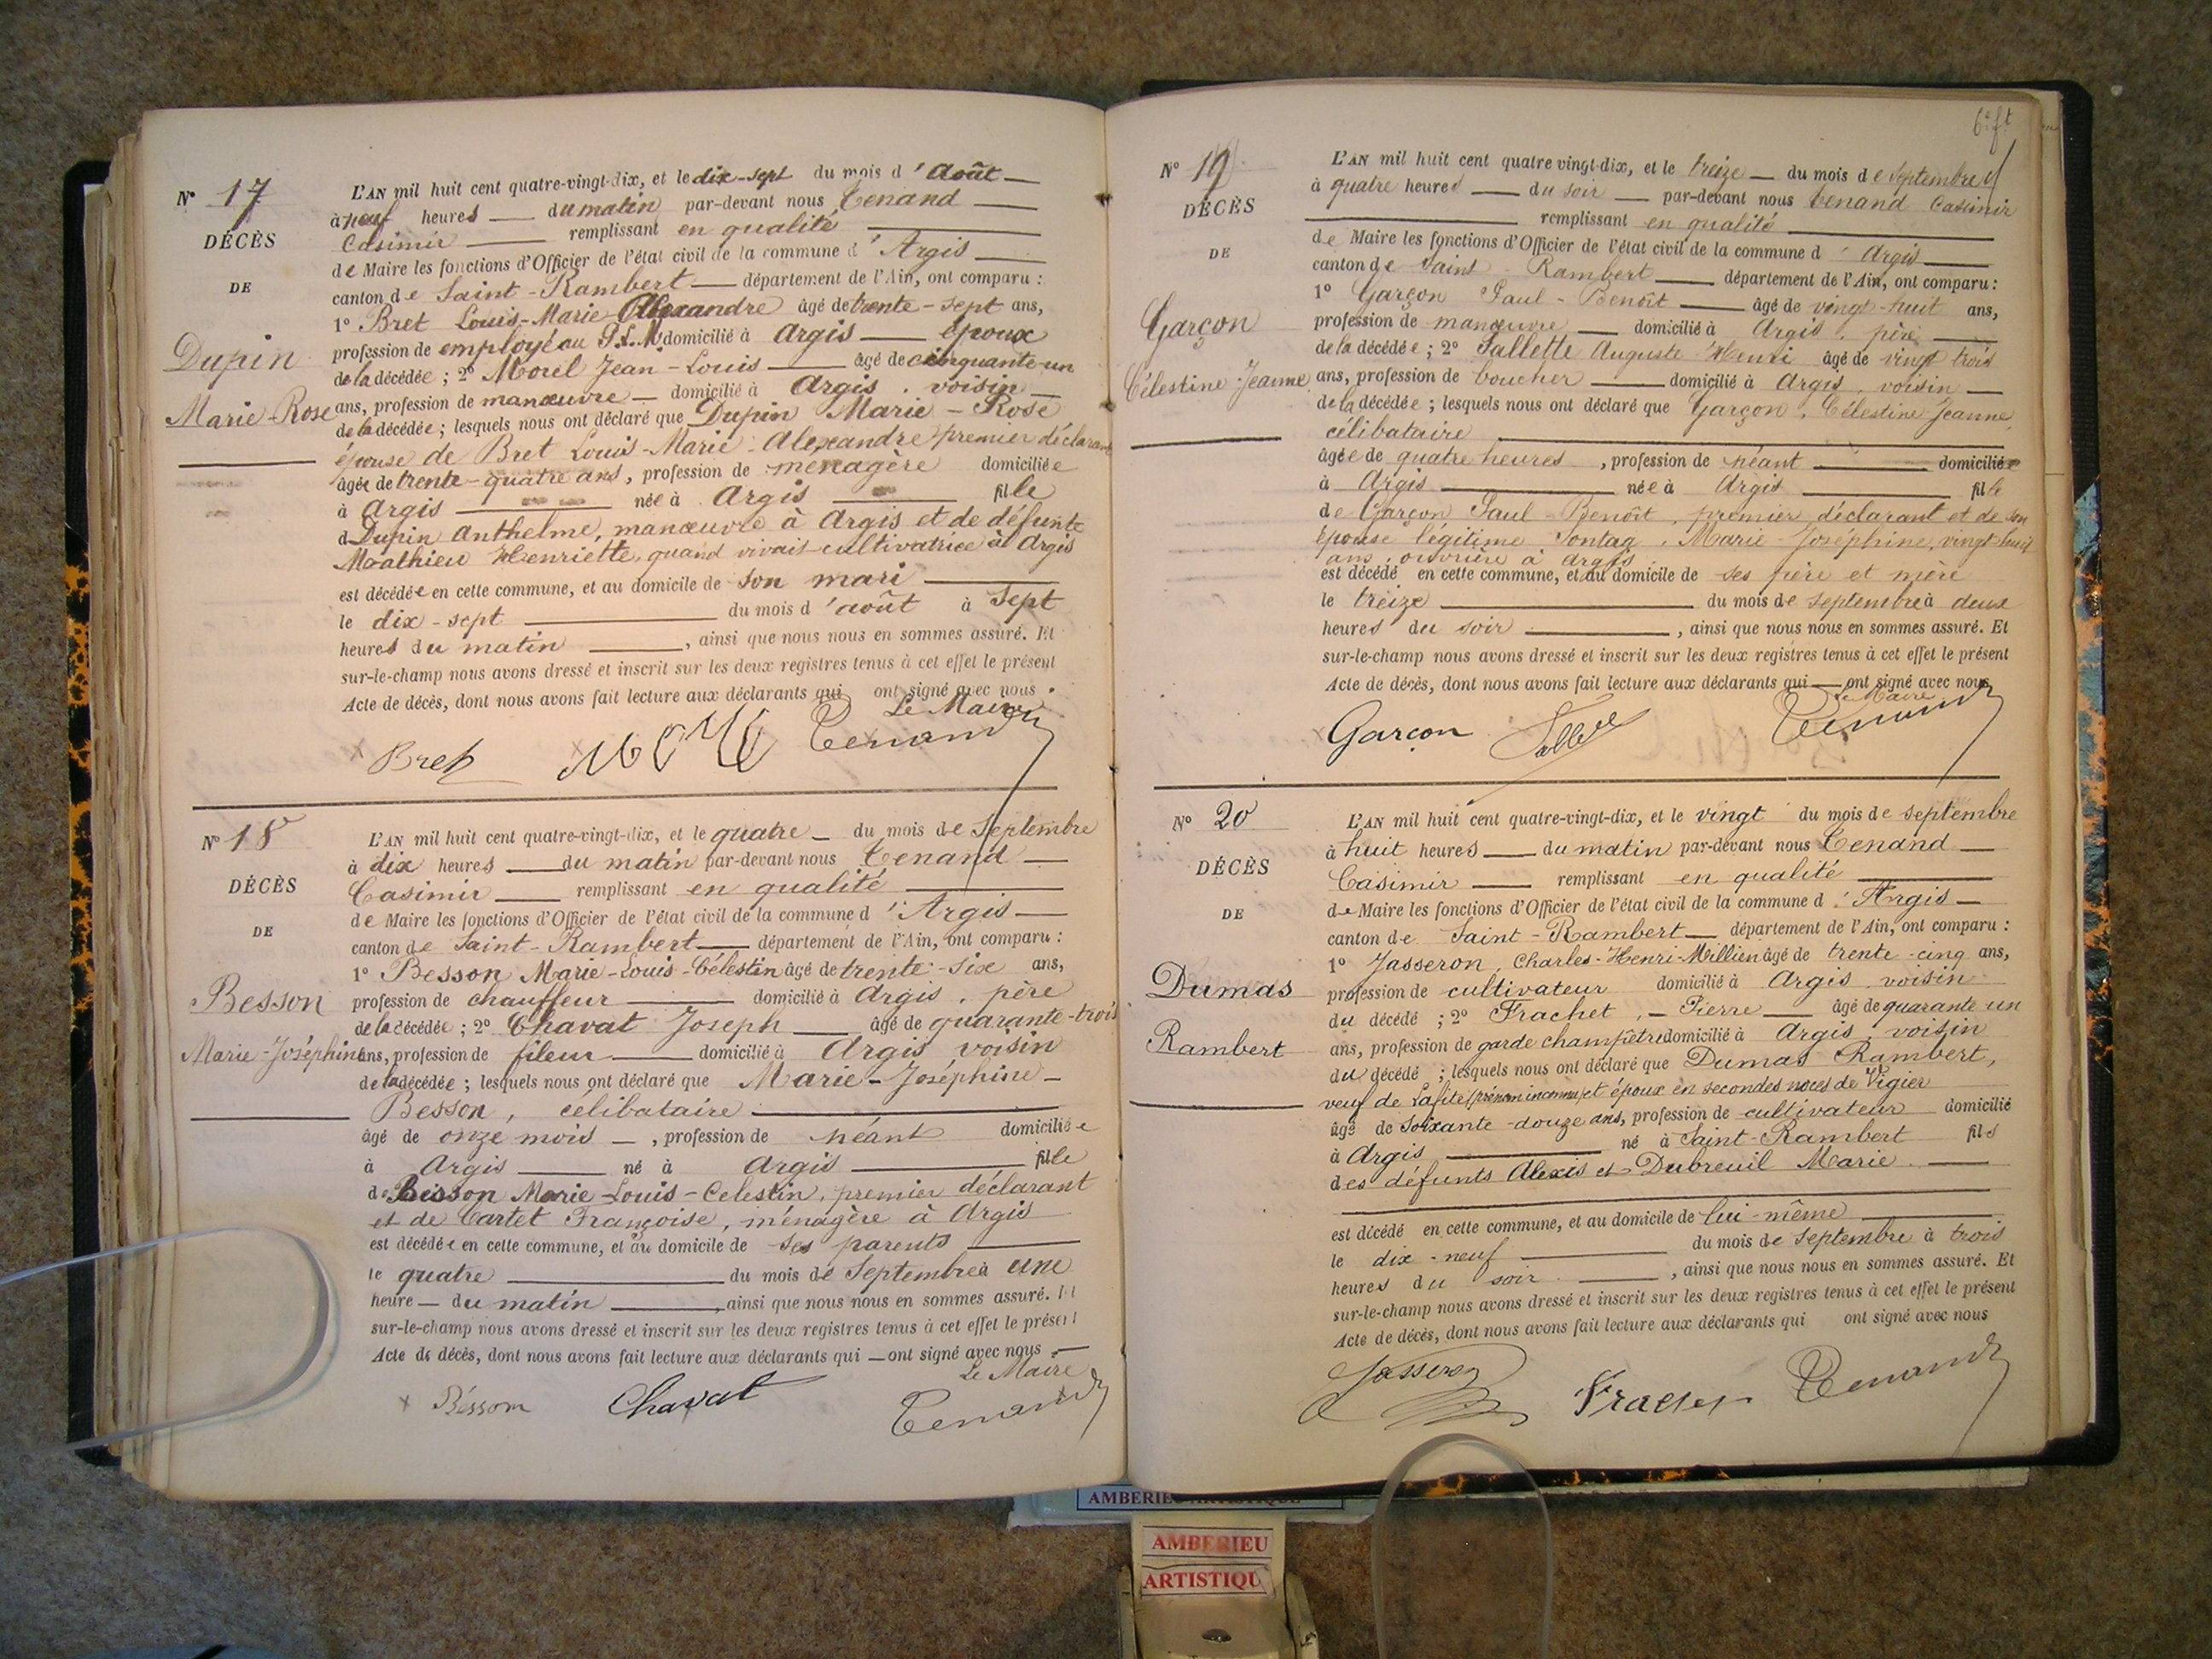 N° 17
DÉCÈS
DE
Dupin
Marie-Rose
L'AN mil huit cent quatre-vingt-dix, et le dix-sept du mois d'Août
à neuf heures du matin par-devant nous Tenand
Casimir remplissant en qualité
de Maire les fonctions d'Officier de l'état civil de la commune d'Argis
canton de Saint-Rambert département de l'Ain, ont comparu :
1° Bret Louis-Marie Alexandre âgé de trente-sept ans,
profession de employé au P.L.M domicilié à Argis époux
de la décédée ; 2° Morel Jean-Louis âgé de cinquante un
ans, profession de manœuvre domicilié à Argis, voisin
de la décédée ; lesquels nous ont déclaré que Dupin Marie-Rose
épouse de Bret Louis-Marie-Alexandre premier déclarant
âgée de trente-quatre ans, profession de ménagère domiciliée
à Argis née à Argis fille
de Dupin Anthelme, manœuvre à Argis et de défunte
Mathieu Henriette, quand vivait cultivatrice à Argis
est décédée en cette commune, et au domicile de son mari
le dix-sept du mois d'août à sept
heures du matin, ainsi que nous nous en sommes assuré. Et
sur-le-champ nous avons dressé et inscrit sur les deux registres tenus à cet effet le présent
Acte de décès, dont nous avons fait lecture aux déclarants qui ont signé avec nous.
Le Maire
Bret Tenand
N° 18
DÉCÈS
DE
Besson
Marie-Joséphine
L'AN mil huit cent quatre-vingt-dix, et le quatre du mois de Septembre
à dix heures du matin par-devant nous Tenand
Casimir remplissant en qualité
de Maire les fonctions d'Officier de l'état civil de la commune d'Argis
canton de Saint-Rambert département de l'Ain, ont comparu :
1° Besson Marie-Louis-Célestin âgé de trente-six ans,
profession de chauffeur domicilié à Argis, père
de la décédée ; 2° Chavat Joseph âgé de quarante-trois
ans, profession de fileur domicilié à Argis voisin
de la décédée ; lesquels nous ont déclaré que Marie-Joséphine
Besson, célibataire
âgé de onze mois, profession de néant domiciliée
à Argis né à Argis fille
de Besson Marie-Louis-Celestin, premier déclarant
et de Cartet Françoise, ménagère à Argis
est décédée en cette commune, et au domicile de ses parents
le quatre du mois de Septembre à une
heure du matin, ainsi que nous nous en sommes assuré. Et
sur-le-champ nous avons dressé et inscrit sur les deux registres tenus à cet effet le présent
Acte de décès, dont nous avons fait lecture aux déclarants qui ont signé avec nous
Le Maire
Besson Chavat Tenand
N° 19
DÉCÈS
DE
Garçon
Célestine Jeanne
L'AN mil huit cent quatre vingt-dix, et le treize du mois de septembre
à quatre heures du soir par-devant nous Tenand Casimir
remplissant en qualité
de Maire les fonctions d'Officier de l'état civil de la commune d'Argis
canton de Saint Rambert département de l'Ain, ont comparu :
1° Garçon Paul-Benoît âgé de vingt-huit ans,
profession de manœuvre domicilié à Argis, père
de la décédée ; 2° Sallette Auguste Henri âgé de vingt trois
ans, profession de boucher domicilié à Argis, voisin
de la décédée ; lesquels nous ont déclaré que Garçon, Célestine Jeanne,
célibataire
âgée de quatre heures, profession de néant domiciliée
à Argis née à Argis fille
de Garçon Paul-Benoît, premier déclarant et de son
épouse légitime Pontag, Marie-Joséphine, vingt-huit
ans, ouvrière à Argis
est décédé en cette commune, et au domicile de ses père et mère
le treize du mois de septembre à deux
heures du soir, ainsi que nous nous en sommes assuré. Et
sur-le-champ nous avons dressé et inscrit sur les deux registres tenus à cet effet le présent
Acte de décès, dont nous avons fait lecture aux déclarants qui ont signé avec nous
Le Maire
Garçon Tenand
N° 20
DÉCÈS
DE
Dumas
Rambert
L'AN mil huit cent quatre-vingt-dix, et le vingt du mois de septembre
à huit heures du matin par-devant nous Tenand
Casimir remplissant en qualité
de Maire les fonctions d'Officier de l'état civil de la commune d'Argis
canton de Saint-Rambert département de l'Ain, ont comparu :
1° Jasseron, Charles-Henri-Millien âgé de trente-cinq ans,
profession de cultivateur domicilié à Argis voisin
du décédé ; 2° Frachet, Pierre âgé de quarante un
ans, profession de garde champêtre domicilié à Argis, voisin
du décédé ; lesquels nous ont déclaré que Dumas Rambert,
veuf de Lafite (prénom inconnu) et époux en secondes noces de Vigier
âgé de soixante-douze ans, profession de cultivateur domicilié
à Argis né à Saint-Rambert fils
des défunts Alexis et Dubreuil Marie
est décédé en cette commune, et au domicile de lui-même
le dix-neuf du mois de septembre à trois
heures du soir, ainsi que nous nous en sommes assuré. Et
sur-le-champ nous avons dressé et inscrit sur les deux registres tenus à cet effet le présent
Acte de décès, dont nous avons fait lecture aux déclarants qui ont signé avec nous
Jasseron Frachet Tenand
AMBERIEU ARTISTIQUE
AMBERIEU
ARTISTIQU